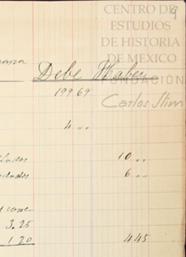 CENTRO DE
ESTUDIOS
DE HISTORIA
DE MEXICO
FUNDACIÓN
Carlos Slim
9
Debe Haber
199 69
4 ..
10 ..
6 ..
3.25
1 20 4 45